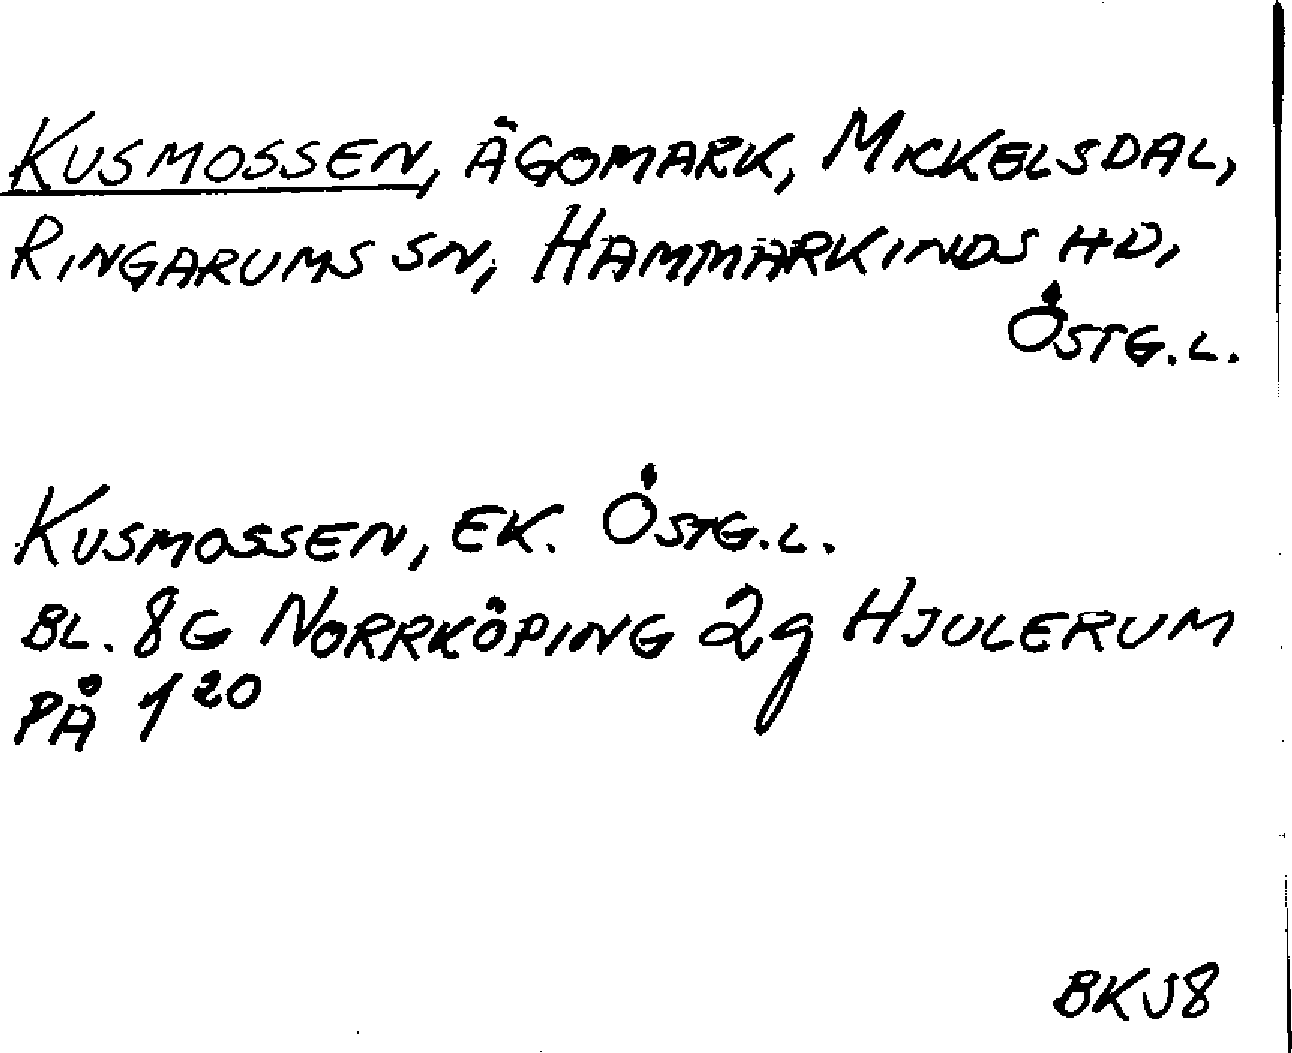 KUSMOSSEN, ÄGOMARK, MICKELSDAL,
RINGARUMS SN, HAMMARKINDS HD,
ÖSTG.L.
KUSMOSSEN, EK. ÖSTG.L.
BL. 8G NORRKÖPING 2g HJULERUM
PÅ 1 20
BKJ8